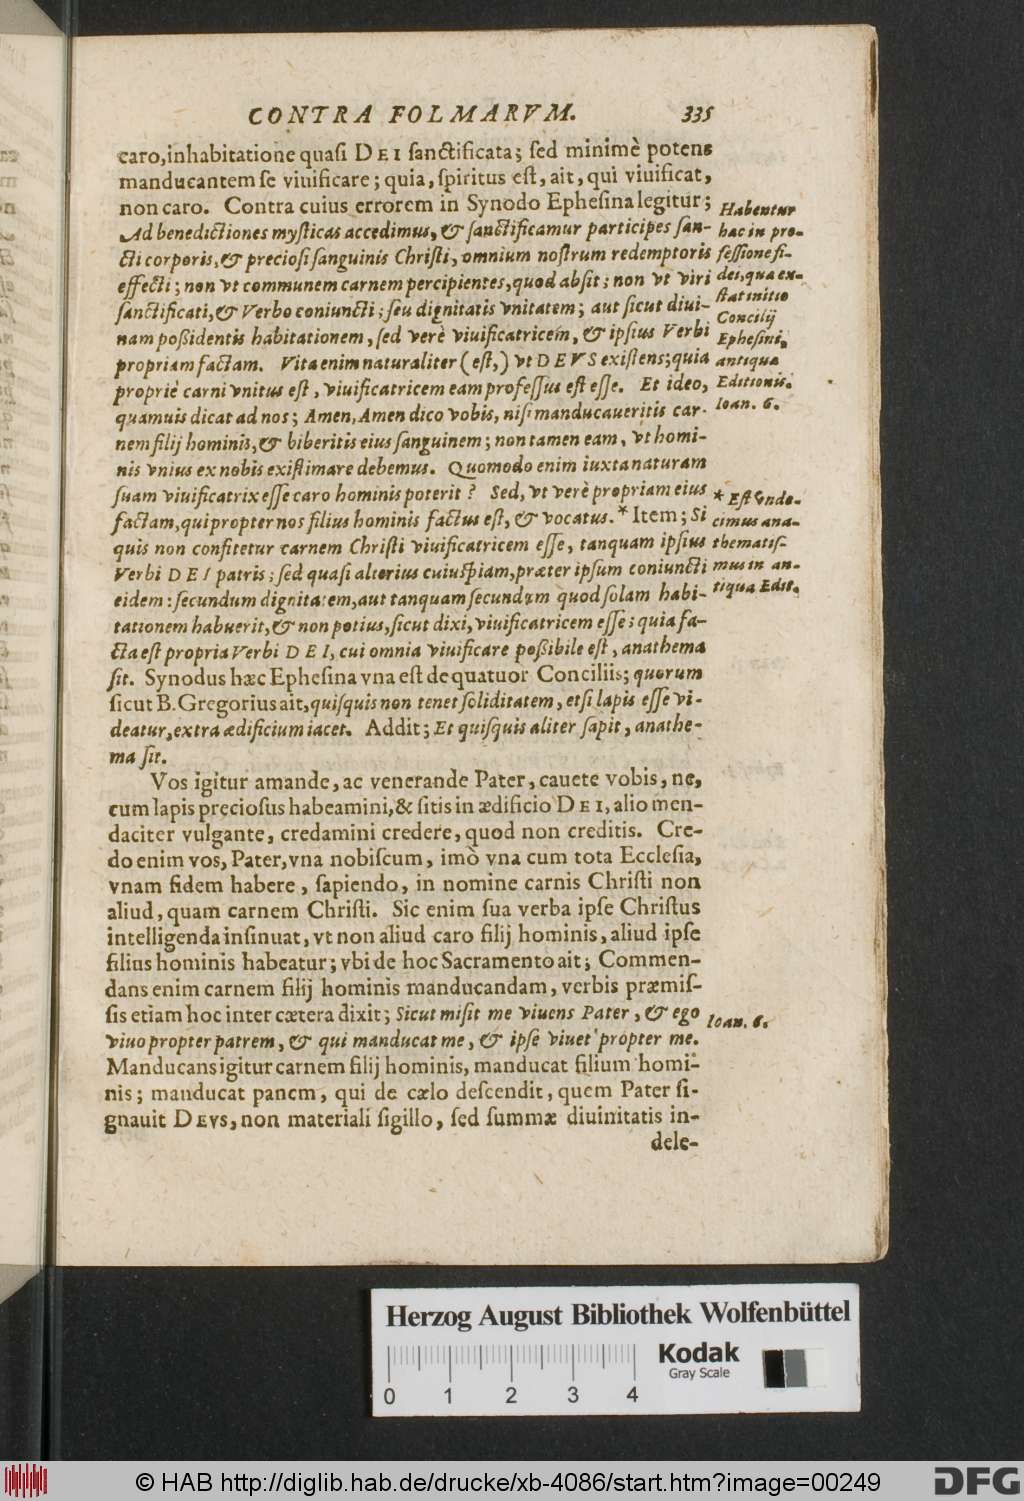 CONTRA FOLMARVM. 335
caro,inhabitatione quasi DEI sanctificata; sed minimè potens
manducantem se viuificare; quia, spiritus est, ait, qui viuificat,
non caro. Contra cuius errorem in Synodo Ephesina legitur;
Ad benedictiones mysticas accedimus, & sanctificamur participes san-
cti corporis, & preciosi sanguinis Christi, omnium nostrum redemptoris
effecti; non vt communem carnem percipientes, quod absit; non vt viri
sanctificati, & Verbo coniuncti; seu dignitatis vnitatem; aut sicut diui-
nam possidentis habitationem, sed verè viuificatricem, & ipsius Verbi
propriam factam. Vita enim naturaliter (est,) vt DEVS existens; quia
propriè carni vnitus est, viuificatricem eam professus est esse. Et ideo,
quamuis dicat ad nos; Amen, Amen dico vobis, nisi manducaueritis car-
nem filij hominis, & biberitis eius sanguinem; non tamen eam, vt homi-
nis vnius ex nobis existimare debemus. Quomodo enim iuxta naturam
suam viuificatrix esse caro hominis poterit? Sed, vt verè propriam eius
factam, qui propter nos filius hominis factus est, & vocatus.* Item; Si
quis non confitetur carnem Christi viuificatricem esse, tanquam ipsius
Verbi DEI patris; sed quasi alterius cuiuspiam, præter ipsum coniuncti
eidem: secundum dignitatem, aut tanquam secundum quod solam habi-
tationem habuerit, & non potius, sicut dixi, viuificatricem esse; quia fa-
cta est propria Verbi DEI, cui omnia viuificare possibile est, anathema
sit. Synodus hæc Ephesina vna est de quatuor Conciliis; quorum
sicut B. Gregorius ait, quisquis non tenet soliditatem, etsi lapis esse vi-
deatur, extra ædificium iacet. Addit; Et quisquis aliter sapit, anathe-
ma sit.
Vos igitur amande, ac venerande Pater, cauete vobis, ne,
cum lapis preciosus habeamini, & sitis in ædificio DEI, alio men-
daciter vulgante, credamini credere, quod non creditis. Cre-
do enim vos, Pater, vna nobiscum, imò vna cum tota Ecclesia,
vnam fidem habere, sapiendo, in nomine carnis Christi non
aliud, quam carnem Christi. Sic enim sua verba ipse Christus
intelligenda insinuat, vt non aliud caro filij hominis, aliud ipse
filius hominis habeatur; vbi de hoc Sacramento ait; Commen-
dans enim carnem filij hominis manducandam, verbis præmis-
sis etiam hoc inter cætera dixit; Sicut misit me viuens Pater, & ego
viuo propter patrem, & qui manducat me, & ipse viuet propter me.
Manducans igitur carnem filij hominis, manducat filium homi-
nis; manducat panem, qui de cælo descendit, quem Pater si-
gnauit DEVS, non materiali sigillo, sed summæ diuinitatis in-
dele-
Habentur
hac in pro-
fessione fi-
dei, qua ex-
stat initio
Concilij
Ephesini,
antiqua
Editionis.
Ioan. 6.
* Est vnde-
cimus ana-
thematis-
mus in an-
tiqua Edit.
Ioan. 6.
Herzog August Bibliothek Wolfenbüttel
0 1 2 3 4
Kodak
Gray Scale
© HAB http://diglib.hab.de/drucke/xb-4086/start.htm?image=00249
DFG